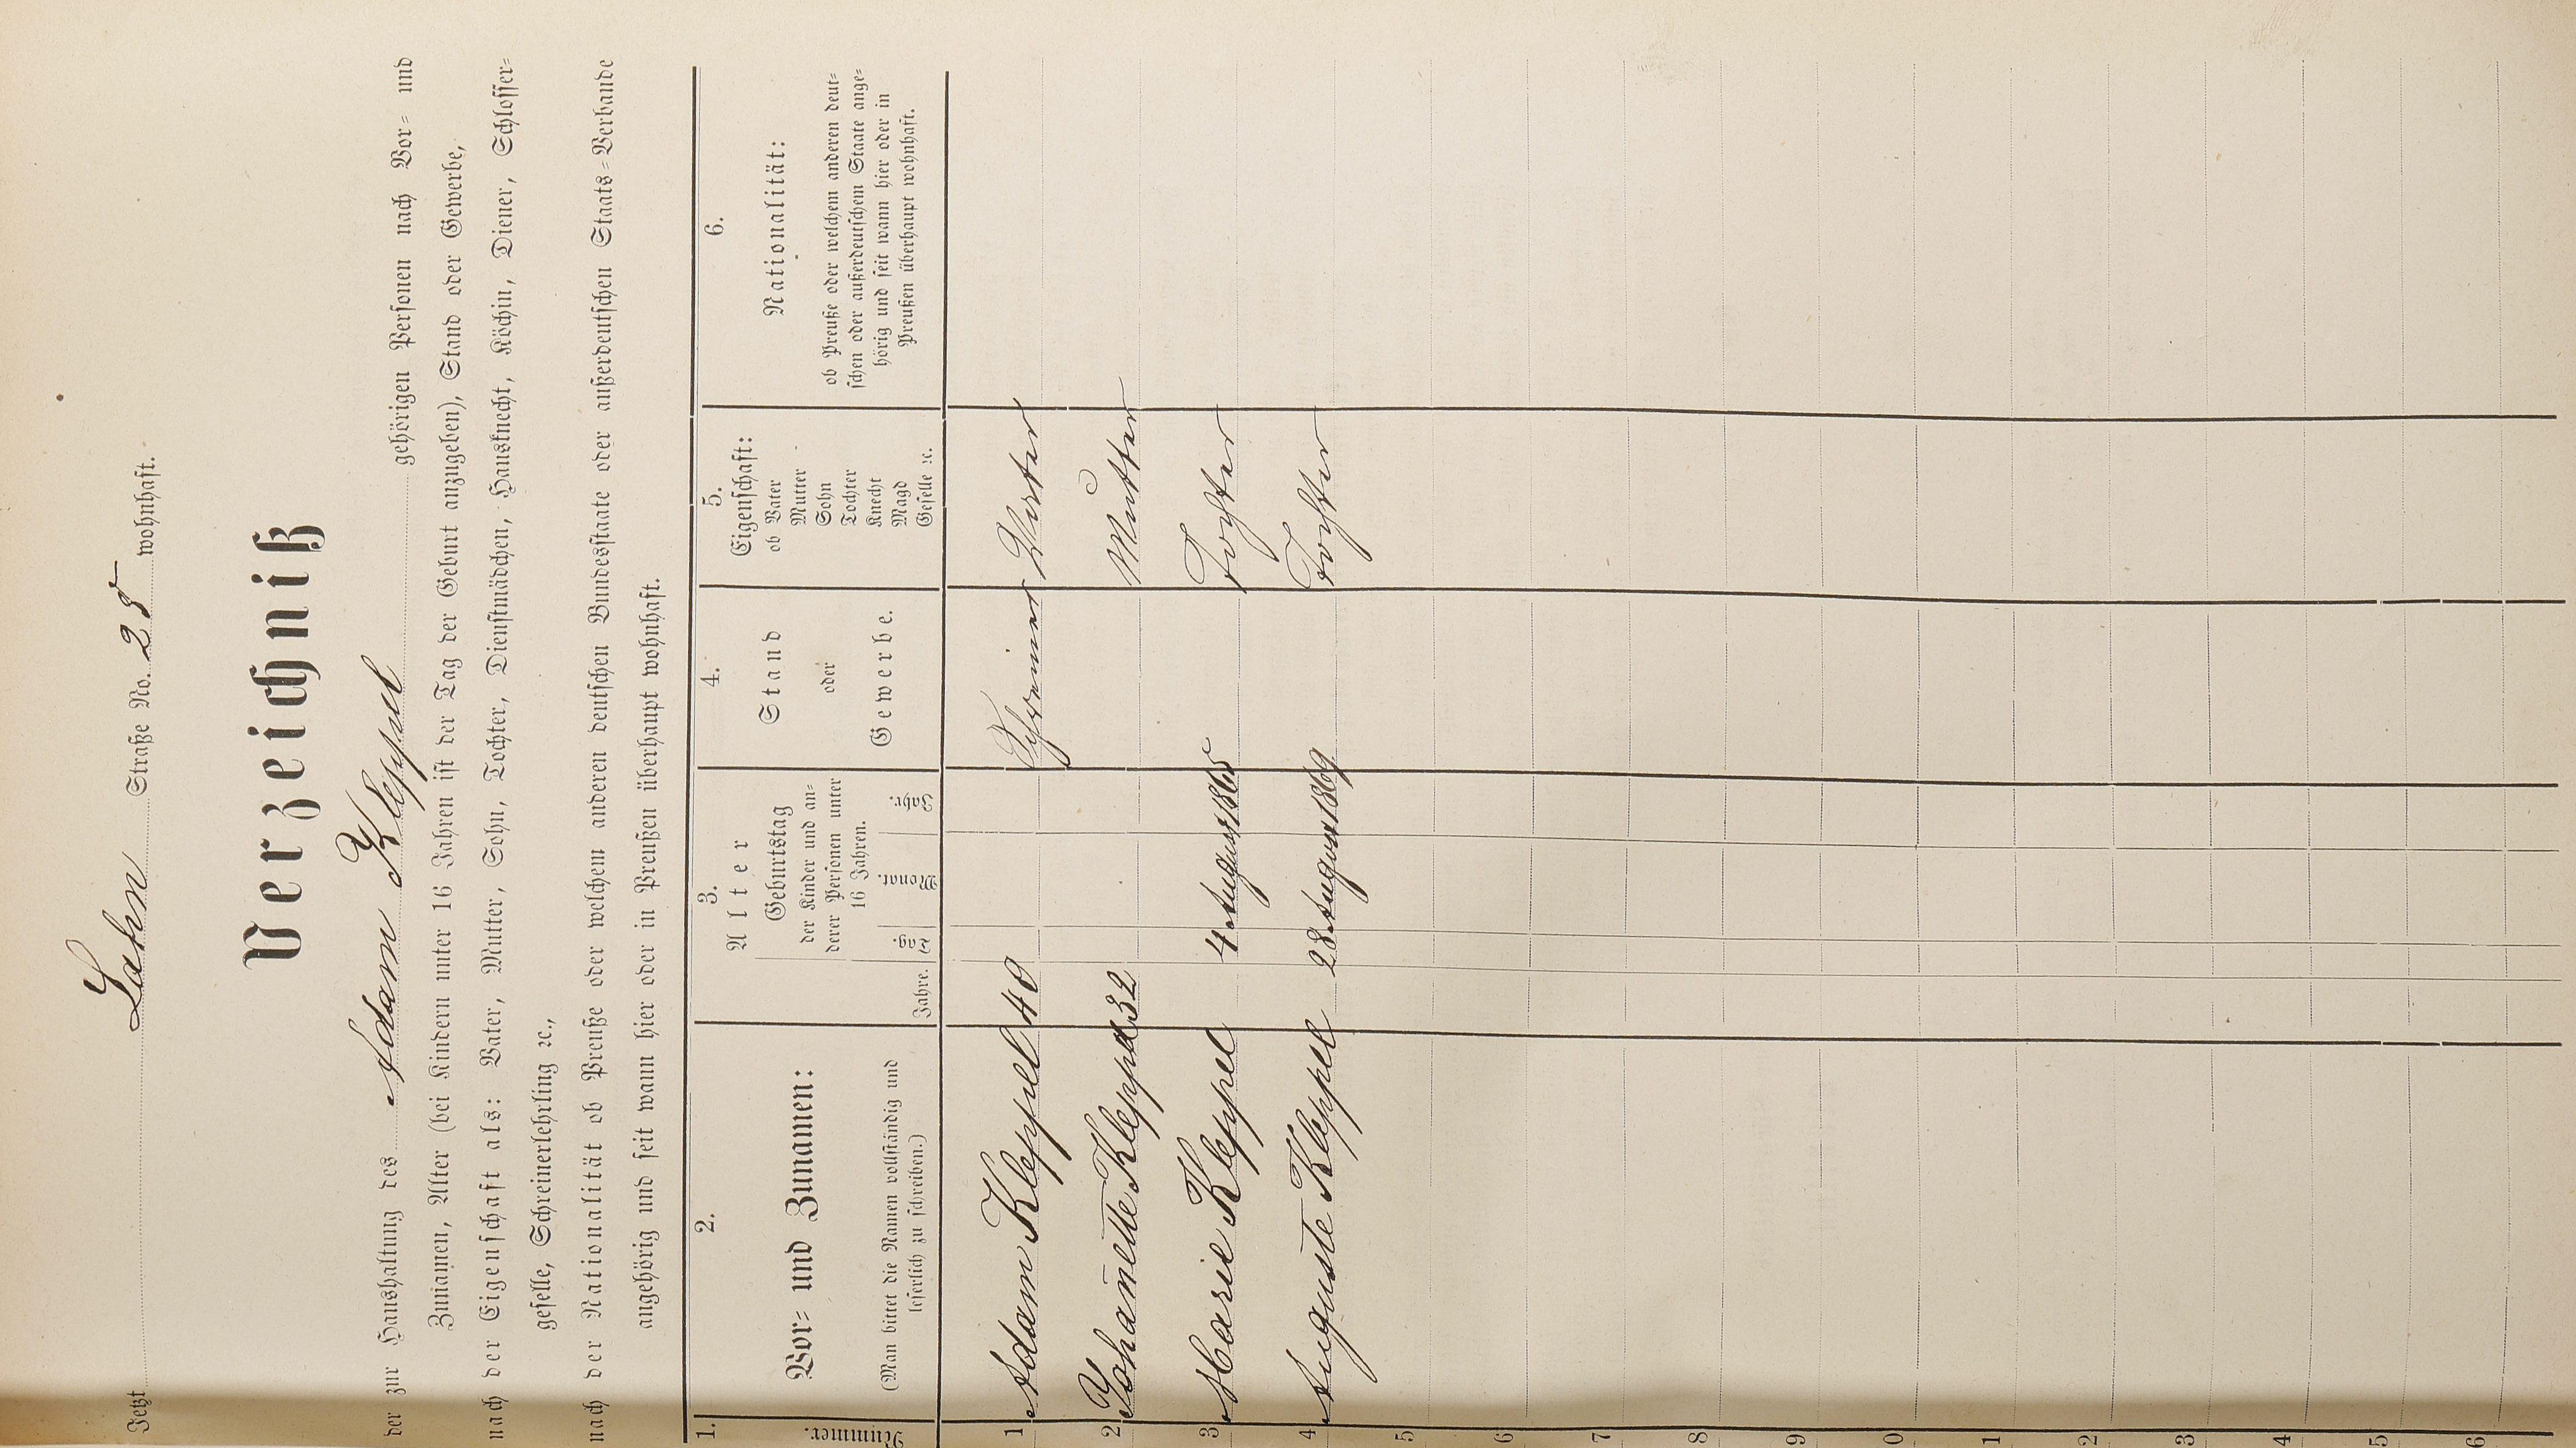 Jetzt Lahn Straße No. 25 wohnhaft.
Verzeichniß
der zur Haushaltung des Adam Kleppel gehörigen Personen nach Vor= und
Zunamen, Alter (bei Kindern unter 16 Jahren ist der Tag der Geburt anzugeben), Stand oder Gewerbe,
nach der Eigenschaft als: Vater, Mutter, Sohn, Tochter, Dienstmädchen, Hausknecht, Köchin, Diener, Schlosser=
geselle, Schreinerlehrling ꝛc.,
nach der Nationalität ob Preuße oder welchem anderen deutschen Bundesstaate oder außerdeutschen Staats=Verbande
angehörig und seit wann hier oder in Preußen überhaupt wohnhaft.
1.
Nummer.
2.
Vor= und Zunamen:
(Man bittet die Namen vollständig und
leserlich zu schreiben.)
3.
Alter
Geburtstag
der Kinder und an=
derer Personen unter
16 Jahren.
Jahre. Tag. Monat. Jahr.
4.
Stand
oder
Gewerbe.
5.
Eigenschaft:
ob Vater
Mutter
Sohn
Tochter
Knecht
Magd
Geselle ꝛc.
6.
Nationalität:
ob Preuße oder welchem anderen deut=
schen oder außerdeutschem Staate ange=
hörig und seit wann hier oder in
Preußen überhaupt wohnhaft.
1 Adam Kleppel 40 Schreiner Vater
2 Johanette Kleppel 32 Mutter
3 Marie Kleppel 4 August 1865 Tochter
4 Auguste Kleppel 28 August 1869 Tochter
5
6
7
8
9
0
1
2
3
4
5
6